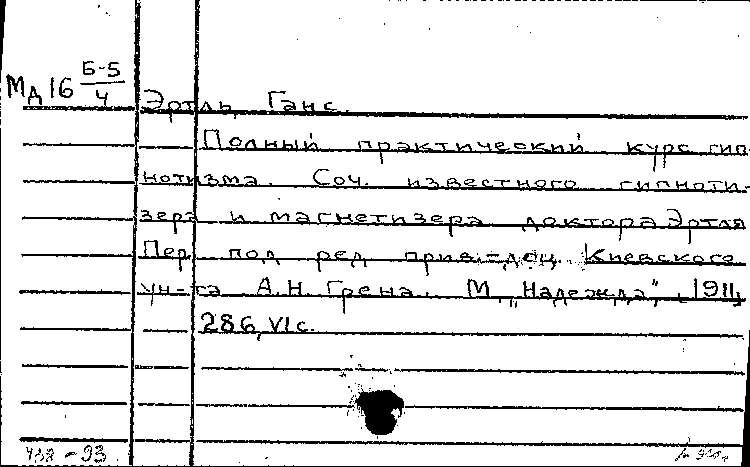 Мд 16 Б-5/4
Эртль, Ганс.
Полный практический курс гип-
нотизма. Соч. известного гипноти-
зера и магнетизера доктора Эртля
Пер. под ред. прив.-доц. Киевского
ун-та А.Н. Грена. М., "Надежда", 1911,
286, VI с.
- 93